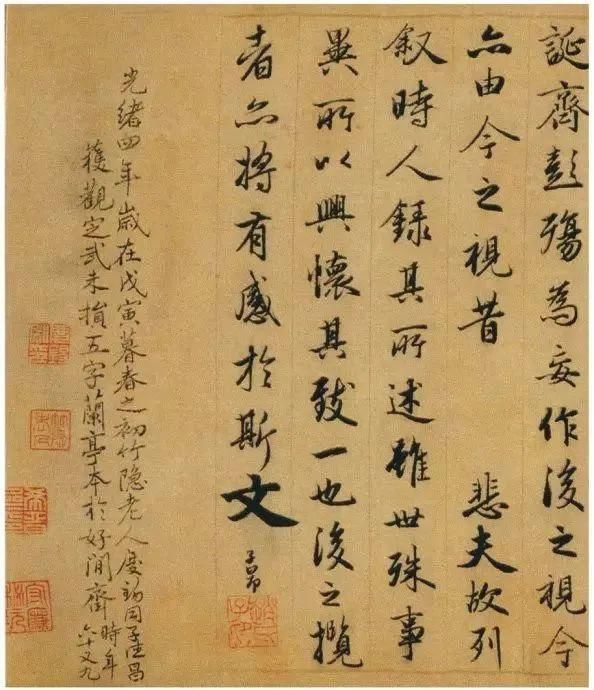 誕齊彭殤為妄作後之視今
亦由今之視昔 悲夫故列
叙時人錄其所述雖世殊事
異所以興懷其致一也後之攬
者亦將有感於斯文
子昂
趙氏子昂
光緒四年歲在戊寅暮春之初竹隱老人慶 同子 昌
獲觀定武未損五字蘭亭本於好閒齋時年
六十又九